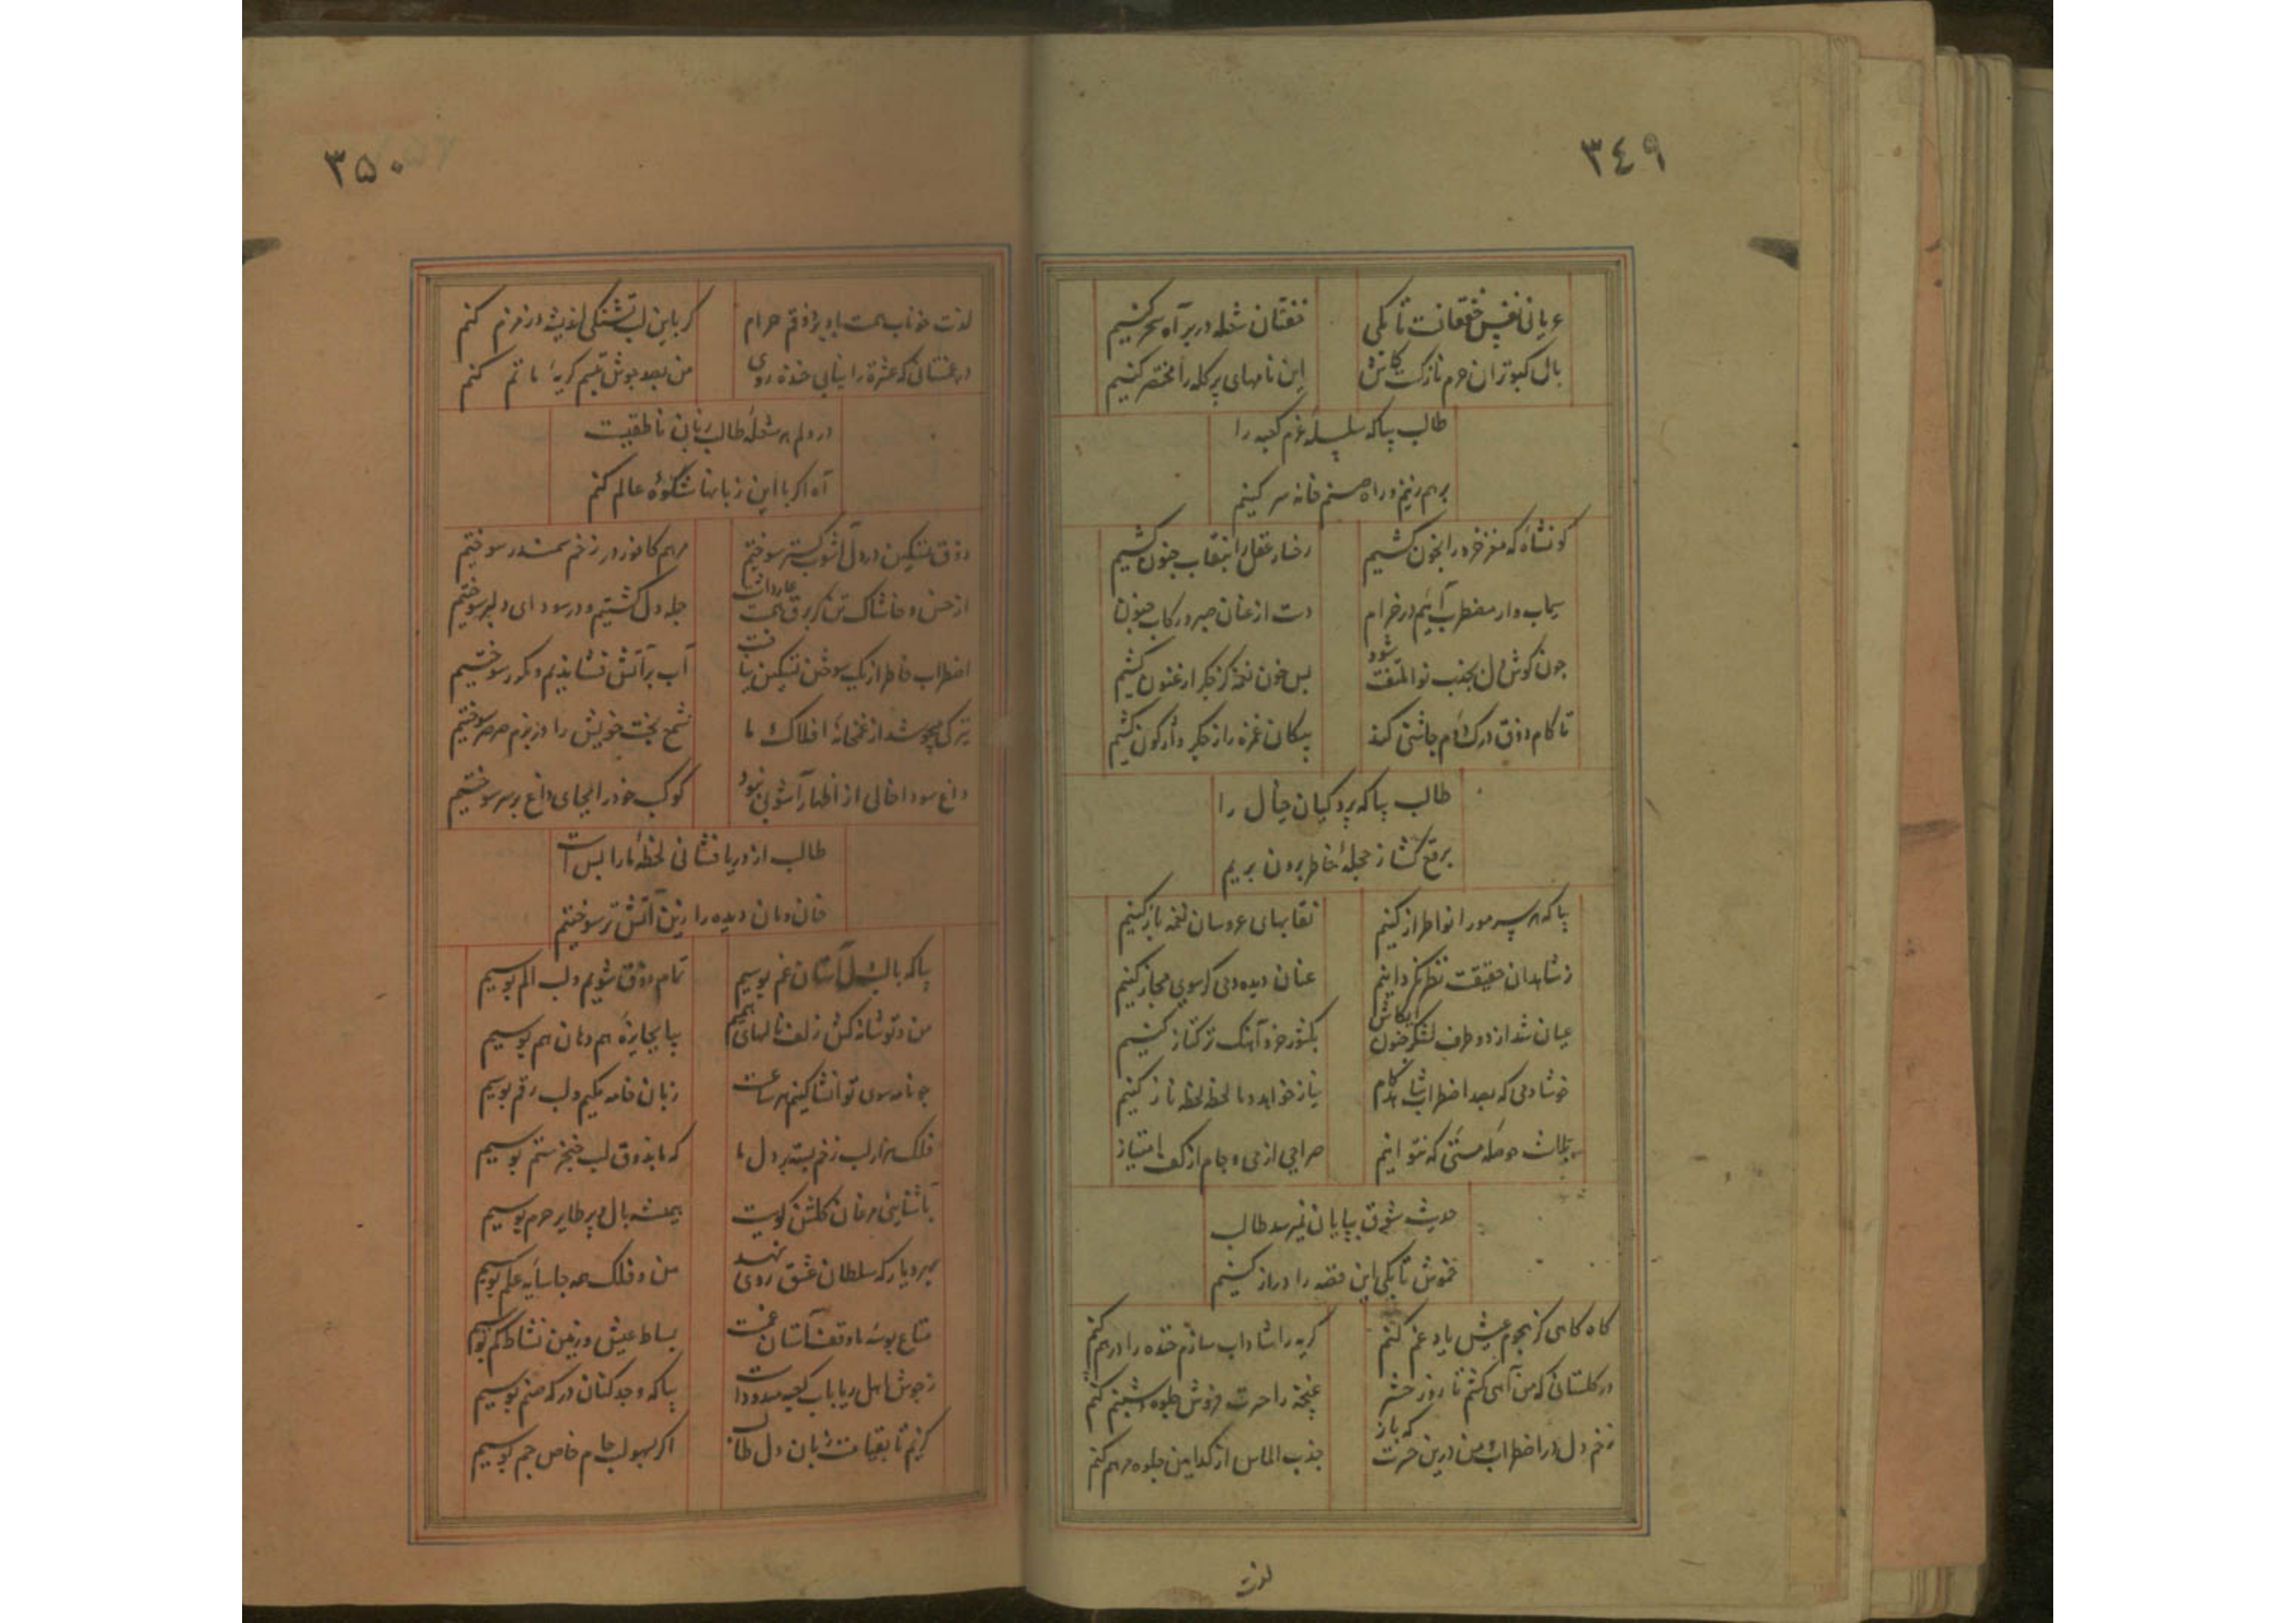 ٣٤٩
عریانی نفس خفقانست تا بکی
خفتان شعله در بر آه سحر کنیم
بال کبوتران حرم نازکست کاش
این نامهای پر گله را مختصر کنیم
طالب بیا که سلسله عزم کعبه را
برهم زنیم و راه صنم خانه سر کنیم
کو نشأه که مغز خرد را بخون کشیم
رخسار عقل را بنقاب جنون کشیم
سیماب وار مضطرب آییم در خرام
دست از عنان صبر و رکاب جنون
چون گوش دل بجذب نوا ملتفت شود
بس خون نغمه کز جگر ارغنون کشیم
تا کام ذوق درک الم چاشنی کند
پیکان غمزه را ز جگر واژگون کشیم
طالب بیا که پردگیان خیال را
برقع گشا ز حجله خاطر برون بریم
بیا که هر سر مو را نوا طراز کنیم
نقابهای عروسان نغمه باز کنیم
ز شاهدان حقیقت نظر نگردانیم
عنان دیده دمی گر سوی مجاز کنیم
عیان شد از دو طرف لشکر جنون ایکاش
بکشور خرد آهنگ ترکتاز کنیم
خوشا دمی که بصد اضطراب شاهد کام
نیاز خواهد و ما لحظه لحظه ناز کنیم
حوصله مستی که نتوانیم
صراحی از می و جام از کف امتیاز
حدیث شوق بپایان نمیرسد طالب
خموش تا بکی این قصه را دراز کنیم
گاه گاهی کز هجوم عیش یاد غم کنم
گریه را شاداب سازم خنده را درهم کنم
در گلستانی که من آهی کشم تا روز حشر
غنچه را حسرت فروش جلوه شبنم کنم
زخم دل در اضطراب و من درین حسرت که باز
جذب الماس از کدامین جلوه مرهم کنم
لذت
٣٥٠
لذت خوناب همت باد بر ذوقم حرام
گر باین لب تشنگی اندیشه در زمزم کنم
در غمستانی که عشرت را نیابی خنده روی
من بصد جوش تبسم گریه ماتم کنم
در دلم هر شعله طالب زبان ناطقیست
آه اگر با این زبانها شکوه عالم کنم
ذوق تسکین در دل آشوب گستر سوختیم
مرهم کافور در زخم سمندر سوختیم
از خس و خاشاک تن گر برق همت
جمله دل گشتیم و در سودای دلبر سوختیم
اضطراب خاطر از یک سوختن تسکین نیافت
آب بر آتش فشاندیم و مکرر سوختیم
تیرگی چو شد از غمخانه افلاک ما
شمع بخت خویش را در بزم صرصر سوختیم
داغ سودا خالی از اظهار آشوبی نبود
کوکب خود را بجای داغ بر سر سوختیم
طالب از دریا فشانی لحظه ما را بس است
خان و مان دیده را زین آتش تر سوختیم
بیا که با لب دل آستان غم بوسیم
تمام ذوق شویم و لب الم بوسیم
من و تو شانه کش زلف نالهای همیم
بیا بجایزه هم دهان هم بوسیم
چو نامه سوی تو انشا کنیم هر ساعت
زبان خامه مکیم و لب رقم بوسیم
فلک هزار لب زخم بسته بر دل ما
که ما بذوق لب خنجر ستم بوسیم
بآشنایی مرغان گلشن کویت
همیشه بال و پر طایر حرم بوسیم
بهر دیار که سلطان عشق روی نهد
من و فلک همه جا سایه علم بوسیم
متاع بوسه ما وقف آستان غمت
بساط عیش و زمین نشاط کم بوسیم
ز جوش اهل ریا باب کعبه مسدود است
بیا که وجد کنان درگه صنم بوسیم
گزیم تا بقیامت زبان دل طالب
اگر بسهو لب جام خاص جم بوسیم